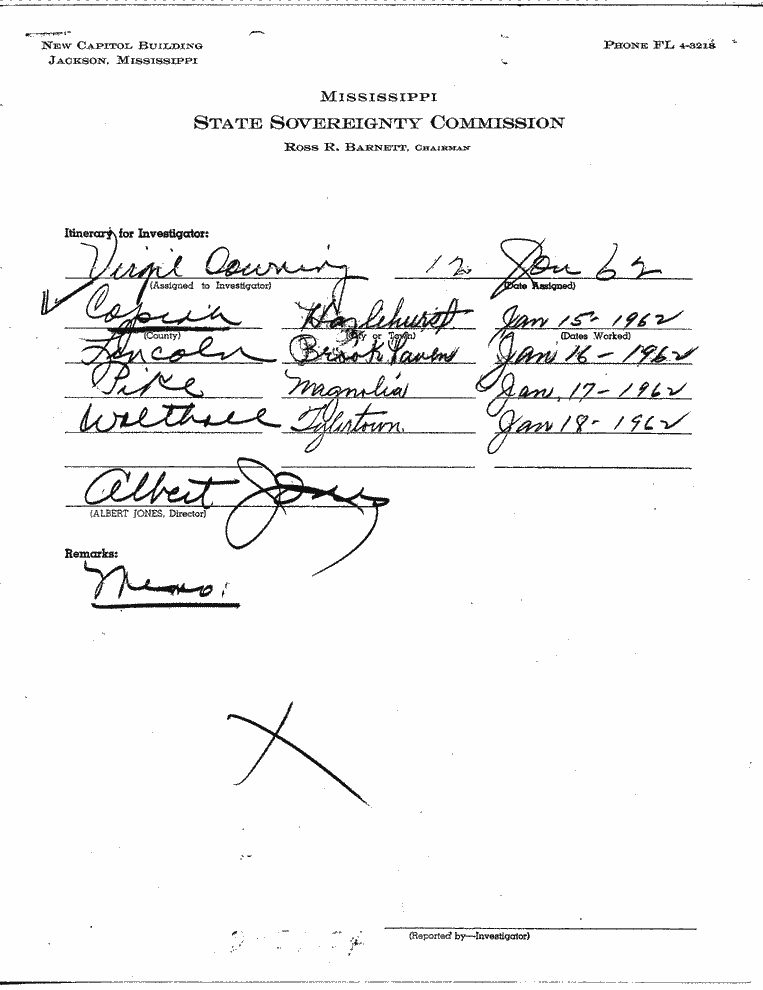 NEW CAPITOL BUILDING
JACKSON, MISSISSIPPI
PHONE FL 4-3218
MISSISSIPPI
STATE SOVEREIGNTY COMMISSION
ROSS R. BARNETT, CHAIRMAN
Itinerary for Investigator:
Virgil Downing 12 Jan 62
(Assigned to Investigator) (Date Assigned)
Copiah Hazlehurst Jan 15-1962
(County) (City or Town) (Dates Worked)
Lincoln Brookhaven Jan 16-1962
Pike Magnolia Jan. 17-1962
Walthall Tylertown. Jan 18-1962
Albert Jones
(ALBERT JONES, Director)
Remarks:
Memo:
(Reported by—Investigator)